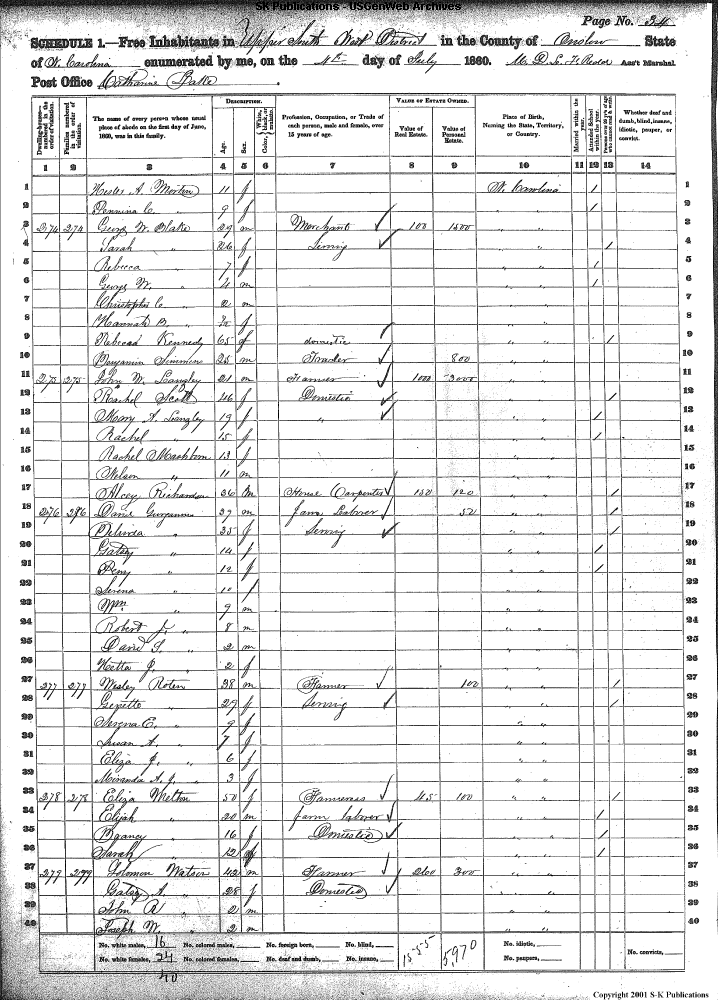 SK Publications - USGenWeb Archives
Page No. 34
SCHEDULE 1.—Free Inhabitants in Upper South West District in the County of Onslow State
of N. Carolina enumerated by me, on the 4th day of July 1860. Ass't Marshal
Post Office Catharine Lake
DESCRIPTION. VALUE OF ESTATE OWNED.
Dwelling-houses—numbered in the order of visitation. Families numbered in the order of visitation. The name of every person whose usual place of abode on the first day of June, 1860, was in this family. Age. Sex. Color, Profession, Occupation, or Trade of each person, male and female, over 15 years of age. Value of Real Estate. Value of Personal Estate. Place of Birth, Naming the State, Territory, or Country. Married within the year. Attended School within the year. Whether deaf and dumb, blind, insane, idiotic, pauper, or convict.
1 2 3 4 5 6 7 8 9 10 11 12 13 14
1 A. Morton 11 f N. Carolina / 1
2 Pennina C. " 9 f " " / 2
3 274 274 George W. Blake 29 m Merchant 100 1500 " " 3
4 Sarah " 26 f Sewing " " / 4
5 Rebecca " 7 f " " / 5
6 George W. " 4 m " " / 6
7 Christopher C. " 2 m " " 7
8 Hannah B. " f " " 8
9 Rebecca Kennedy 65 f domestic " " / 9
10 Benjamin Simmons 25 m Trader 800 " " 10
11 275 275 John W. Langley 21 m Farmer 1000 3000 " " 11
12 Rachel Scott 46 f Domestic " " / 12
13 Mary A. Langley 19 f " " " / 13
14 Rachel " 15 f " " / 14
15 Rachel Mashborn 13 f " " 15
16 Nelson " 11 m " " 16
17 Alcey Richardson 36 m House Carpenter 150 120 " " / 17
18 276 286 David 39 m farm Laborer 50 " " / 18
19 Delinda " 35 f Sewing " " / 19
20 Gatsey " 14 f " " / 20
21 Peny " 12 f " " / 21
22 Serena " 10 f " " 22
23 Wm " 9 m " " 23
24 Robert J. " 8 m " " 24
25 David S. " 2 m " " 25
26 Hetta J. " 2 f " " 26
27 277 277 Wesley Roten 38 m Farmer 100 " " / 27
28 " 29 f Sewing " " / 28
29 Serena E. " 9 f " " 29
30 Susan A. " 7 f " " 30
31 Eliza J. " 6 f " " 31
32 Miranda A. J. " 3 f " " 32
33 278 278 Eliza Melton 50 f Farmeress 45 100 " " / 33
34 Elijah " 20 m farm laborer " " / 34
35 " 16 f Domestic " " / 35
36 Sarah " 12 f " " / 36
37 279 299 Solomon Watson 42 m Farmer 260 300 " " 37
38 Gatsey A. " 28 f Domestic " " 38
39 John R " 2 m " " 39
40 Joseph W. " 2 m " " 40
No. white males, 16 No. colored males, No. foreign born, No. blind, 1555 5,970 No. idiotic, No. convicts,
No. white females, 24 No. colored females, No. deaf and dumb, No. insane, No. paupers,
40
Copyright 2001 S-K Publications